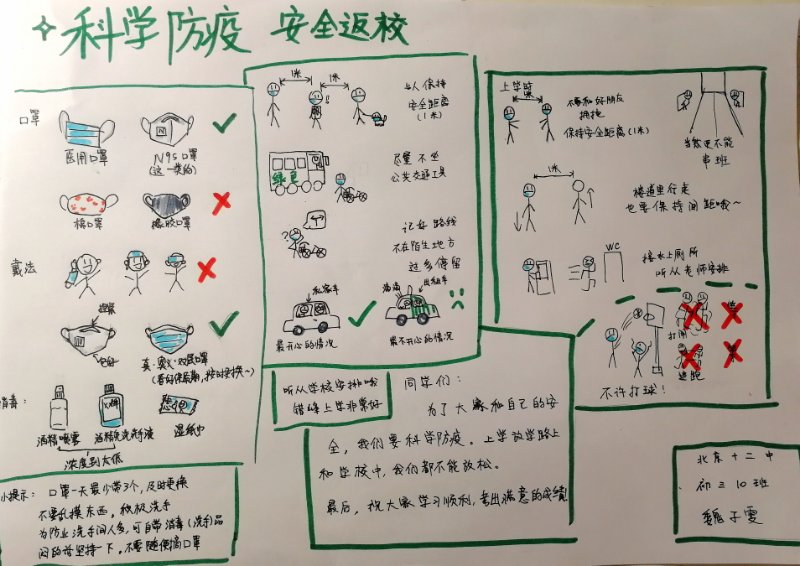 科学防疫 安全返校
口罩
医用口罩
N95口罩
(这一类的)
棉口罩
橡胶口罩
戴法
捏紧
包好
真·奥义·双层口罩
浓度别太低
酒精喷雾
酒精免洗洗手液
湿纸巾
小提示：口罩一天最少带3个，及时更换
不要乱摸东西，积极洗手
为防止洗手间人多，可自带消毒(洗手)品
闷的话坚持一下，不要随便摘口罩
1米
1米
与人保持
安全距离
(1米)
绿色
尽量不坐
公共交通工具
记好路线
不在陌生地方
过多停留
私家车
最开心的情况
出租车
最不开心的情况
听从学校安排哦
错峰上学非常好
同学们：
为了大家和自己的安
全，我们要科学防疫。上学放学路上
和学校中，我们都不能放松。
最后，祝大家学习顺利，考出满意的成绩!
上学时
1米
不要和好朋友
拥抱
保持安全距离(1米)
当然更不能
串班
1米
楼道里行走
也要保持间距哦~
WC
接水上厕所
听从老师安排
打闹
追跑
不许打球！
北京十二中
初三10班
魏子雯